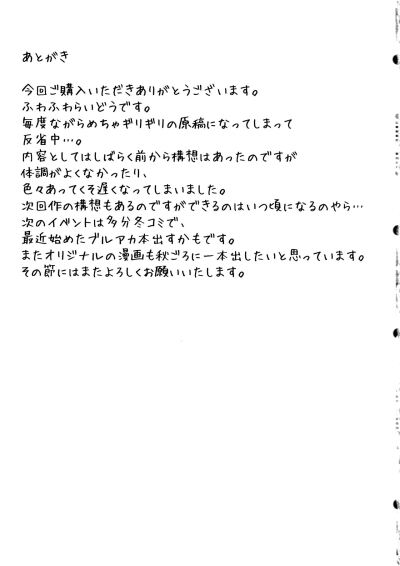 あとがき
今回ご購入いただきありがとうございます。
ふわふわらいどうです。
毎度ながらめちゃギリギリの原稿になってしまって
反省中…。
内容としてはしばらく前から構想はあったのですが
体調がよくなかったり、
色々あってくそ遅くなってしまいました。
次回作の構想もあるのですができるのはいつ頃になるのやら…
次のイベントは多分冬コミで、
最近始めたブルアカ本出すかもです。
またオリジナルの漫画も秋ごろに一本出したいと思っています。
その節にはまたよろしくお願いいたします。